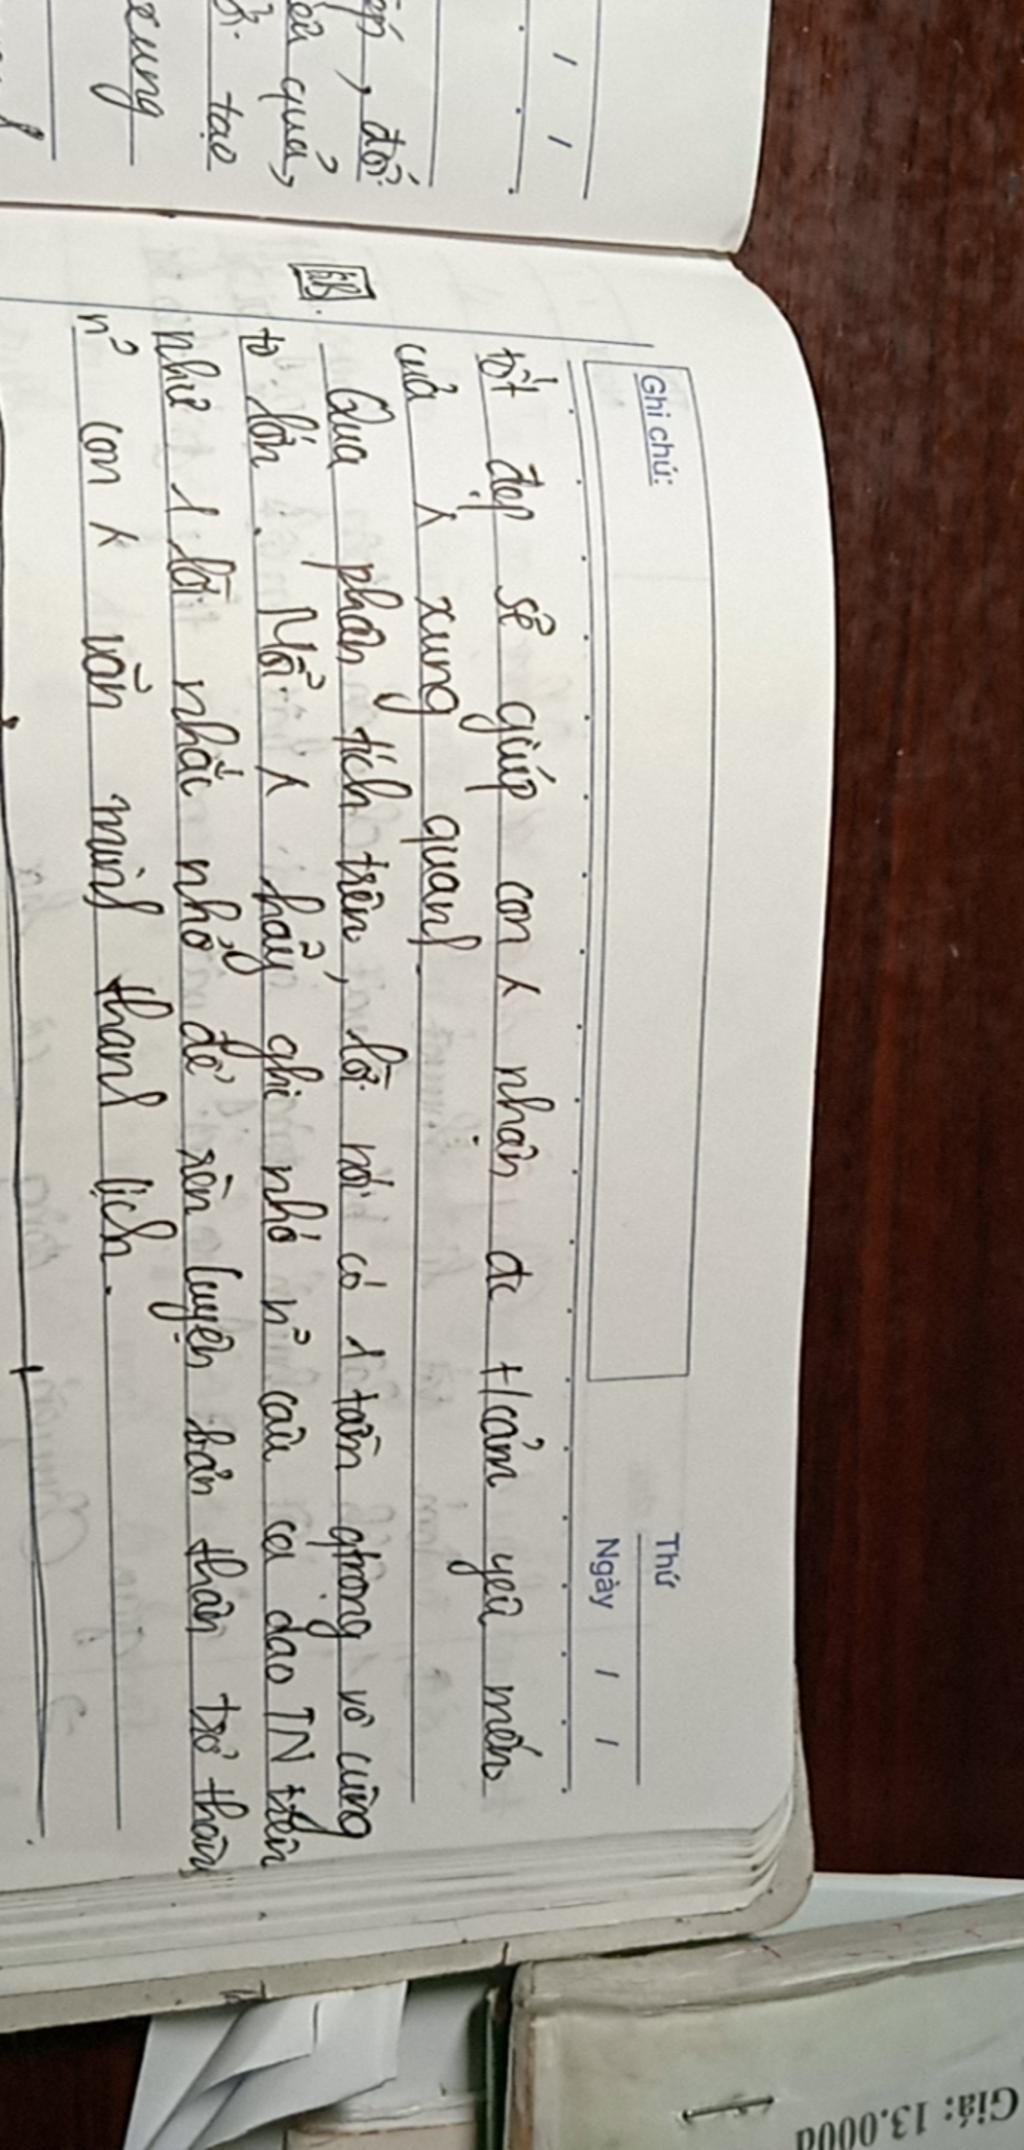 đối
quả,
tạo
xung
Ghi chú:
Thứ
Ngày / /
tốt đẹp sẽ giúp con λ nhận đc t/cảm yêu mến
của λ xung quanh.
KB.
Qua phân tích trên, lời nói có 1 tầm qtrọng vô cùng
to lớn. Mỗi λ hãy ghi nhớ n~ câu ca dao TN trên
như 1 lời nhắc nhở để rèn luyện bản thân trở thành
n~ con λ văn minh thanh lịch.
Giá: 13.000đ